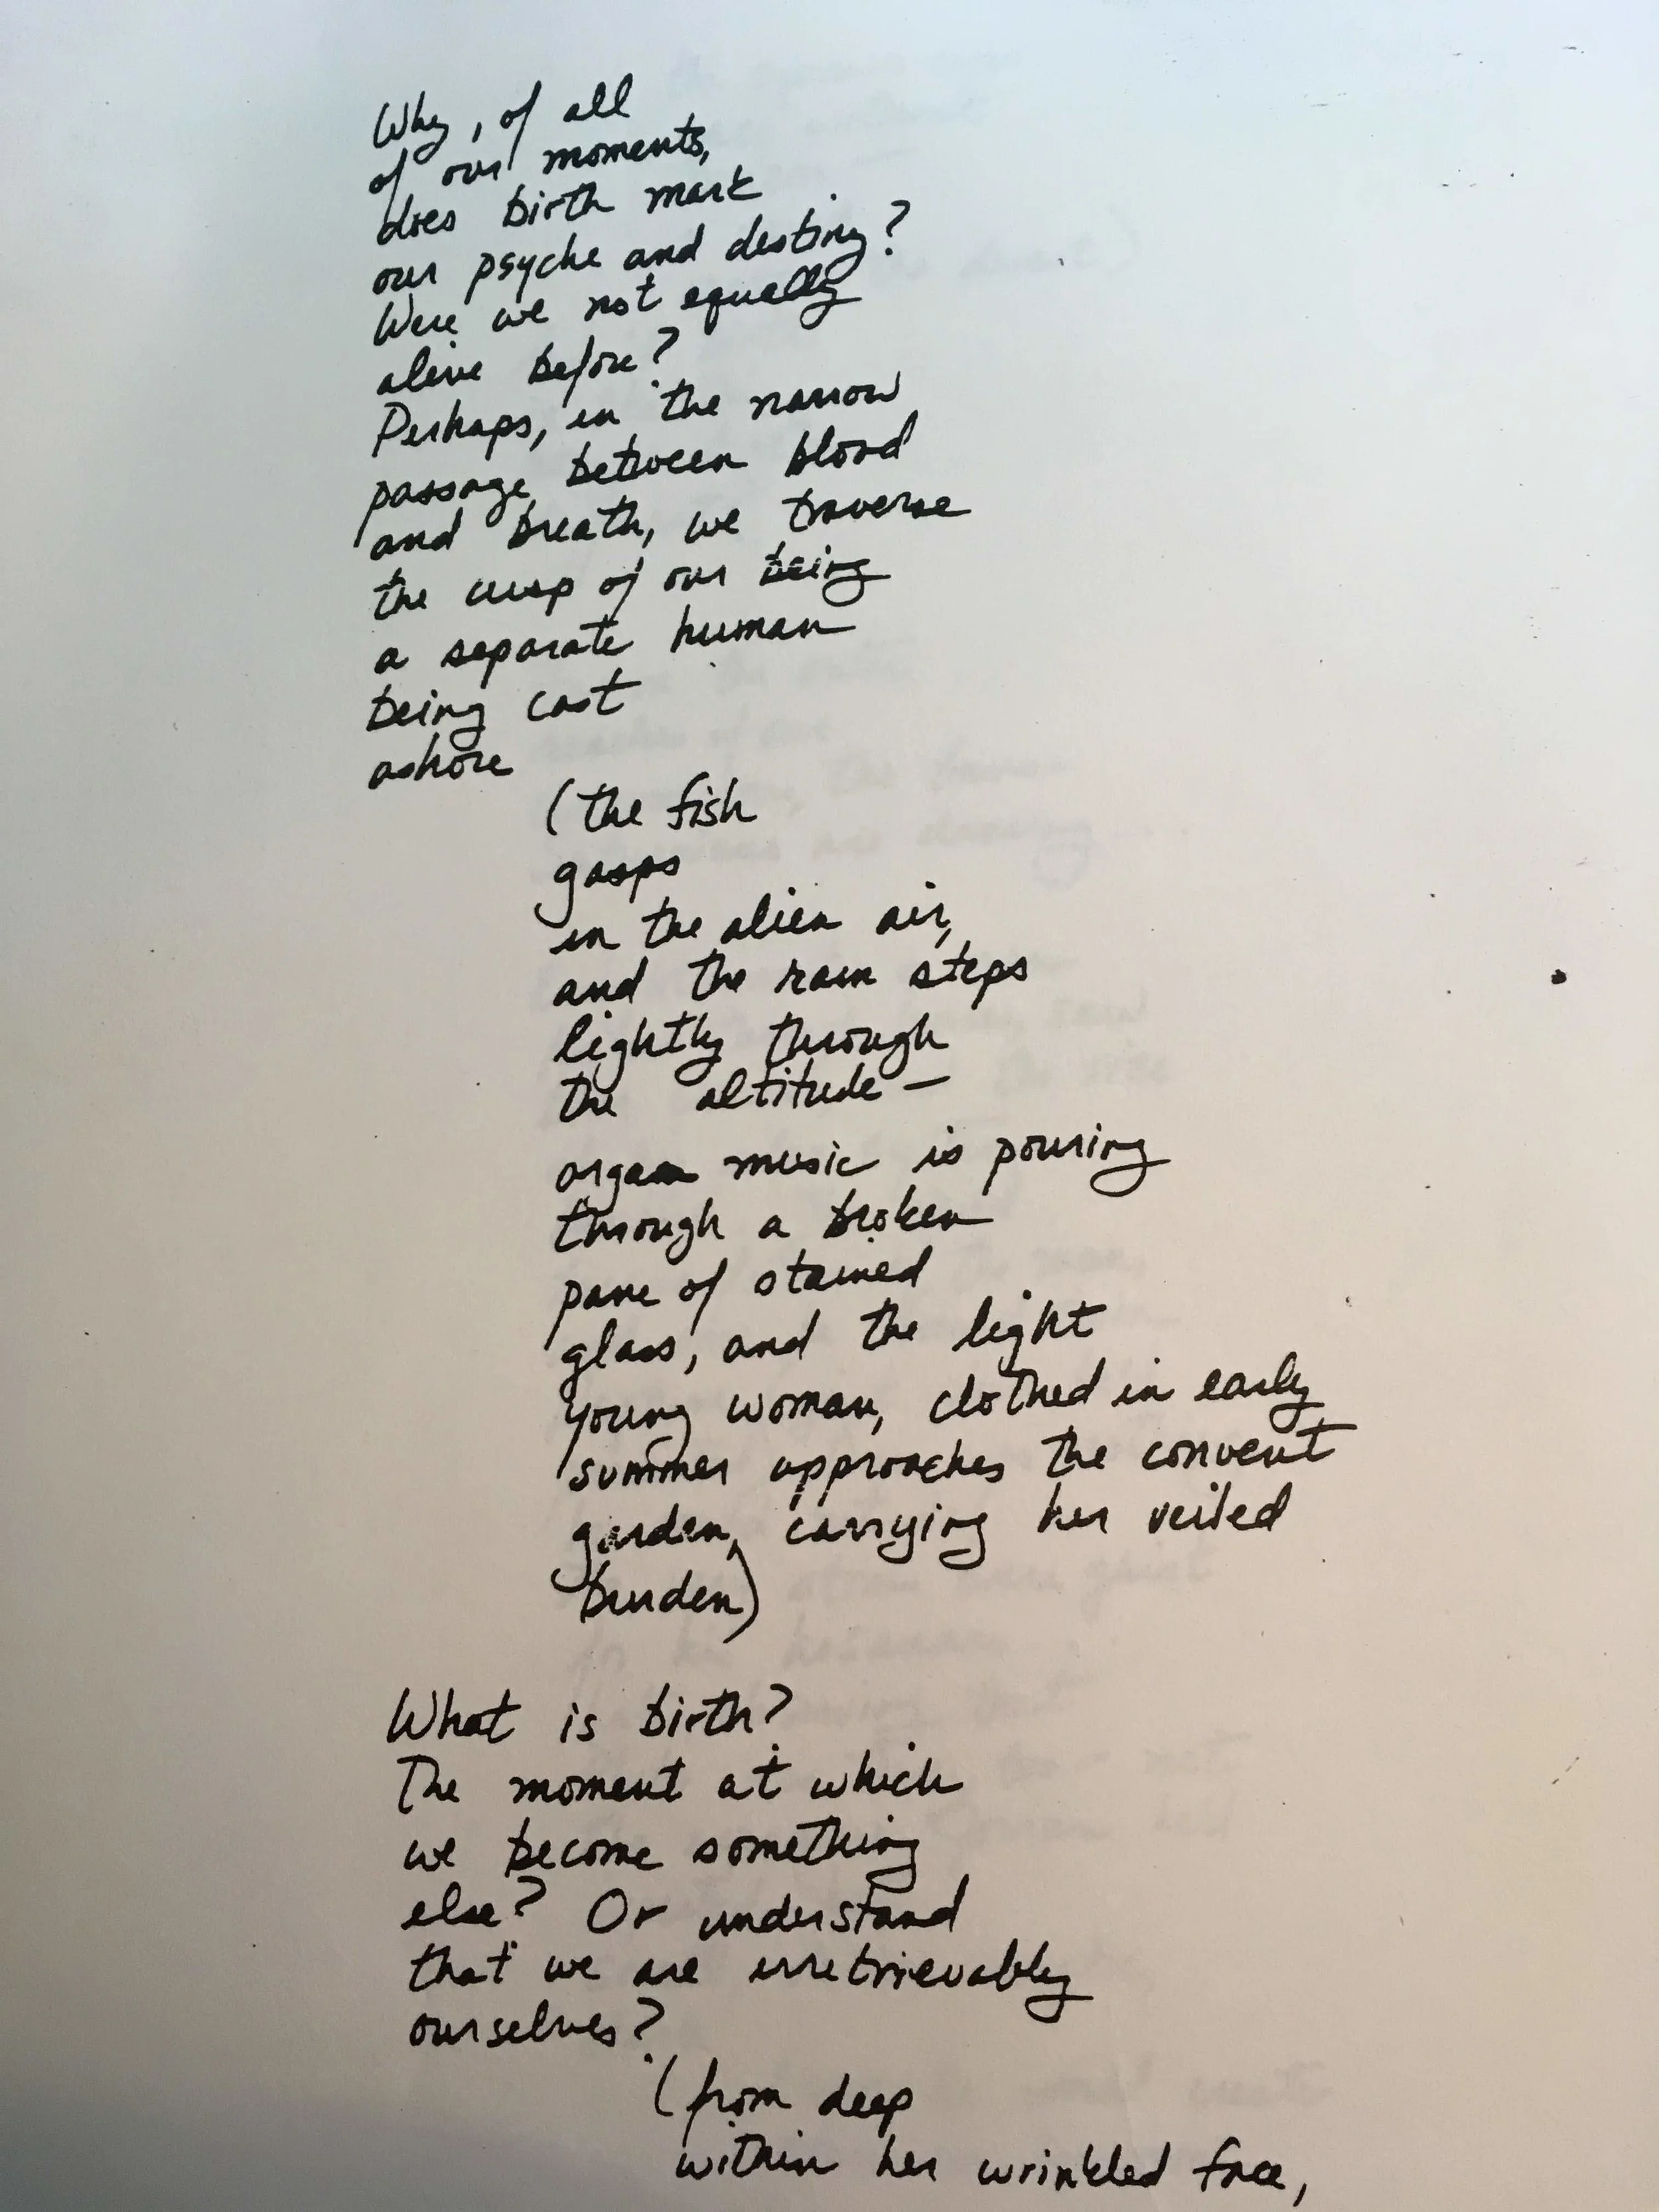 Why, of all
of our moments,
does birth mark
our psyche and destiny?
Were we not equally
alive before?
Perhaps, in the narrow
passage between blood
and breath, we traverse
the cusp of our being
a separate human
being cast
ashore
(the fish
gasps
in the alien air,
and the ram steps
lightly through
the altitude —
organ music is pouring
through a broken
pane of stained
glass, and the light
young woman, clothed in early
summer approaches the convent
garden, carrying her veiled
burden)
What is birth?
The moment at which
we become something
else? Or understand
that we are irretrievably
ourselves?
(from deep
within her wrinkled face,